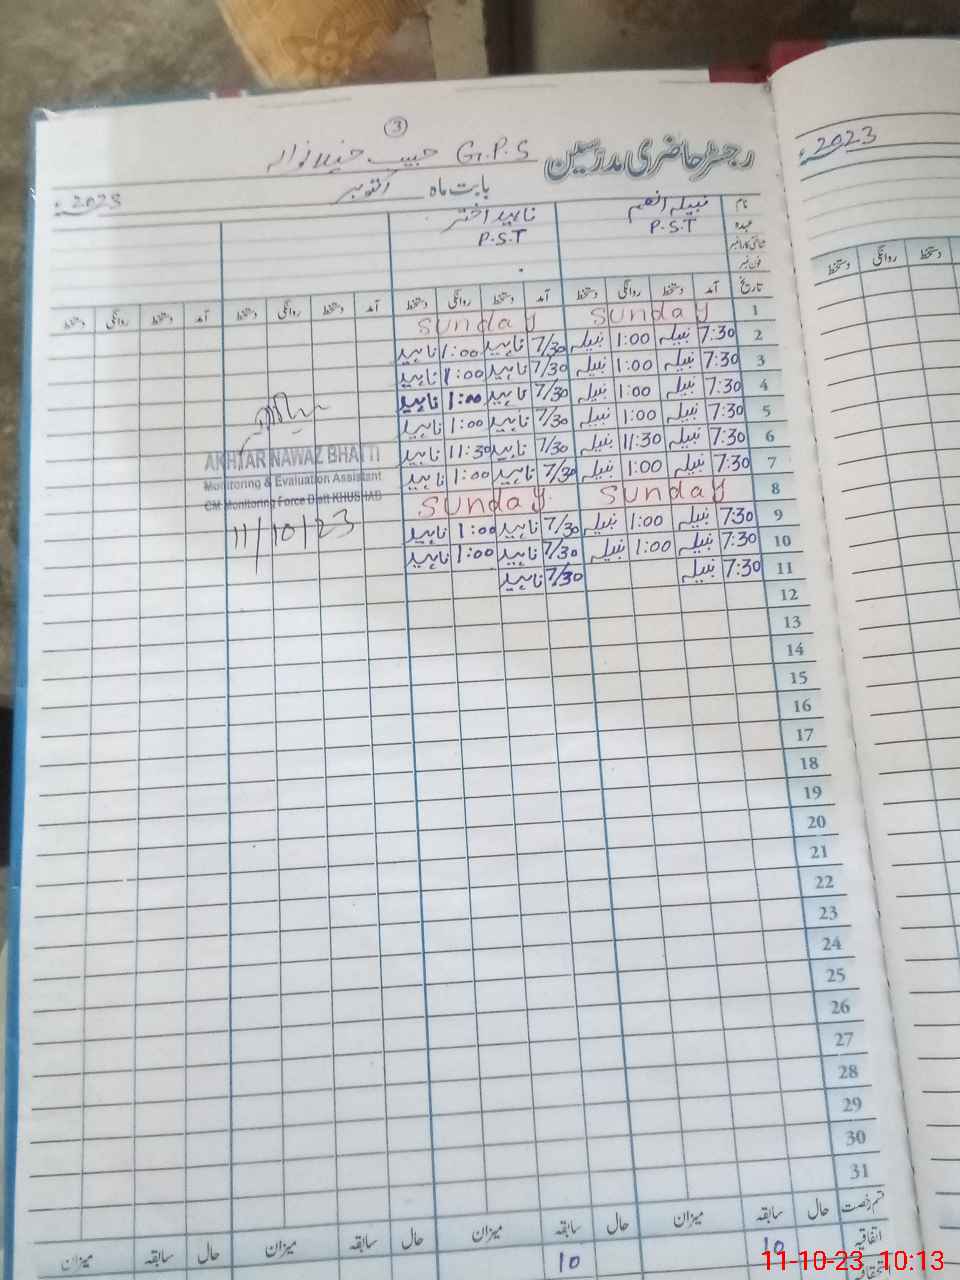 3
رجسٹر حاضری مدرسین G.P.S حبیب
بابت ماہ اکتوبر 2023ء
2023ء
نام نبیلہ انعم ناہید اختر
عہدہ P.S.T P.S.T
شناختی کارڈ نمبر
فون نمبر
تاریخ آمد دستخط روانگی دستخط آمد دستخط روانگی دستخط آمد دستخط روانگی دستخط آمد دستخط روانگی دستخط
دستخط روانگی دستخط
1 Sunday Sunday
2 7:30 نبیلہ 1:00 نبیلہ 7/30 ناہید 1:00 ناہید
3 7:30 نبیلہ 1:00 نبیلہ 7/30 ناہید 1:00 ناہید
4 7:30 نبیلہ 1:00 نبیلہ 7/30 ناہید 1:00 ناہید
5 7:30 نبیلہ 1:00 نبیلہ 7/30 ناہید 1:00 ناہید
6 7:30 نبیلہ 11:30 نبیلہ 7/30 ناہید 11:30 ناہید
7 7:30 نبیلہ 1:00 نبیلہ 7/30 ناہید 1:00 ناہید
8 Sunday Sunday
9 7:30 نبیلہ 1:00 نبیلہ 7/30 ناہید 1:00 ناہید
10 7:30 نبیلہ 1:00 نبیلہ 7/30 ناہید 1:00 ناہید
11 7:30 نبیلہ 7/30 ناہید
AKHTAR NAWAZ BHATTI
Monitoring & Evaluation Assistant
CM Monitoring Force Distt KHUSHAB
11/10/23
12
13
14
15
16
17
18
19
20
21
22
23
24
25
26
27
28
29
30
31
قسم رخصت حال سابقہ میزان حال سابقہ میزان حال سابقہ میزان حال سابقہ میزان
اتفاقیہ 10 10
11-10-23 10:13